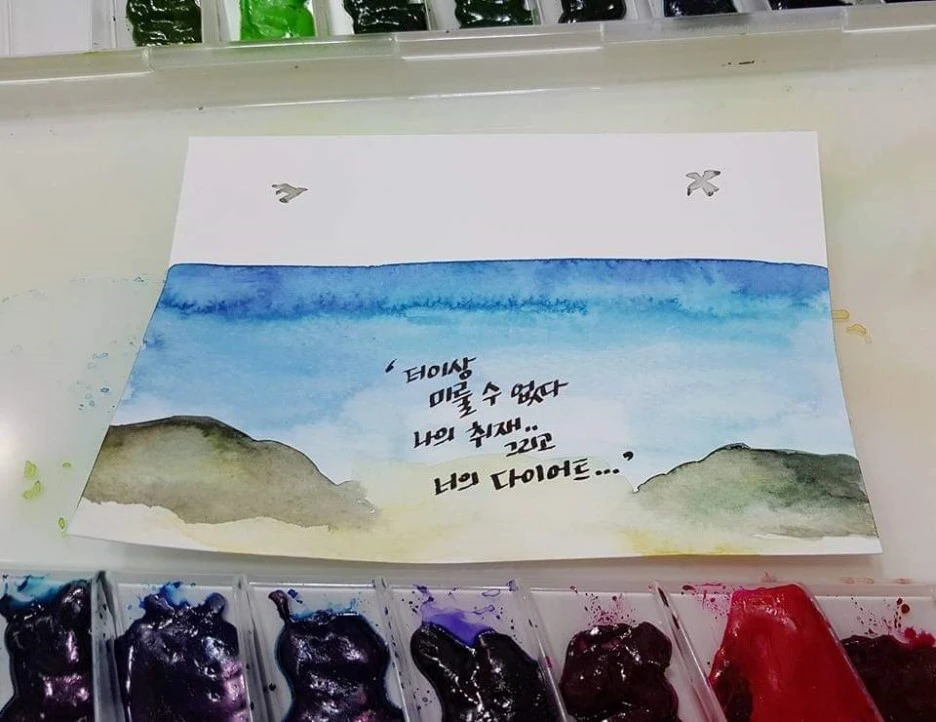 ‘ 더이상
미룰 수 없다
나의 취재..
그리고
너의 다이어트...’